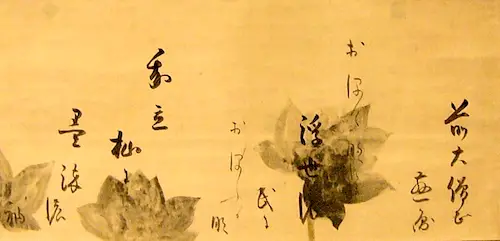 前大僧正
慈円
おほけなく
浮世の
民に
おほふ
我立
杣に
墨染の
袖